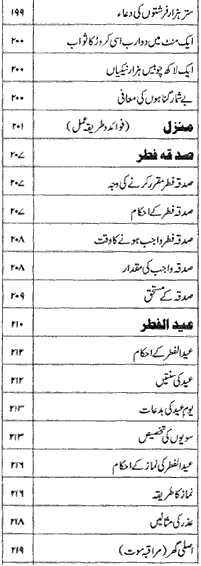 ستر ہزار فرشتوں کی دعاء ۱۹۹
ایک منٹ میں دو ارب اسی کروڑ کا ثواب ۲۰۰
ایک لاکھ چوبیس ہزار نیکیاں ۲۰۰
بے شمار گناہوں کی معافی ۲۰۰
منزل (فوائد و طریقہ عمل) ۲۰۱
صدقہ فطر ۲۰۷
صدقہ فطر مقرر کرنے کی وجہ ۲۰۷
صدقہ فطر کے احکام ۲۰۷
صدقہ فطر واجب ہونے کا وقت ۲۰۸
صدقہ واجب کی مقدار ۲۰۸
صدقہ کے مستحق ۲۰۹
عید الفطر ۲۱۰
عید الفطر کے احکام ۲۱۲
عید کی سنتیں ۲۱۲
یوم عید کی بدعات ۲۱۳
سویوں کی تخصیص ۲۱۳
عید الفطر کی نماز کے احکام ۲۱۶
نماز کا طریقہ ۲۱۶
عذر کی مثالیں ۲۱۸
اصلی گھر (مراقبہ موت) ۲۱۹